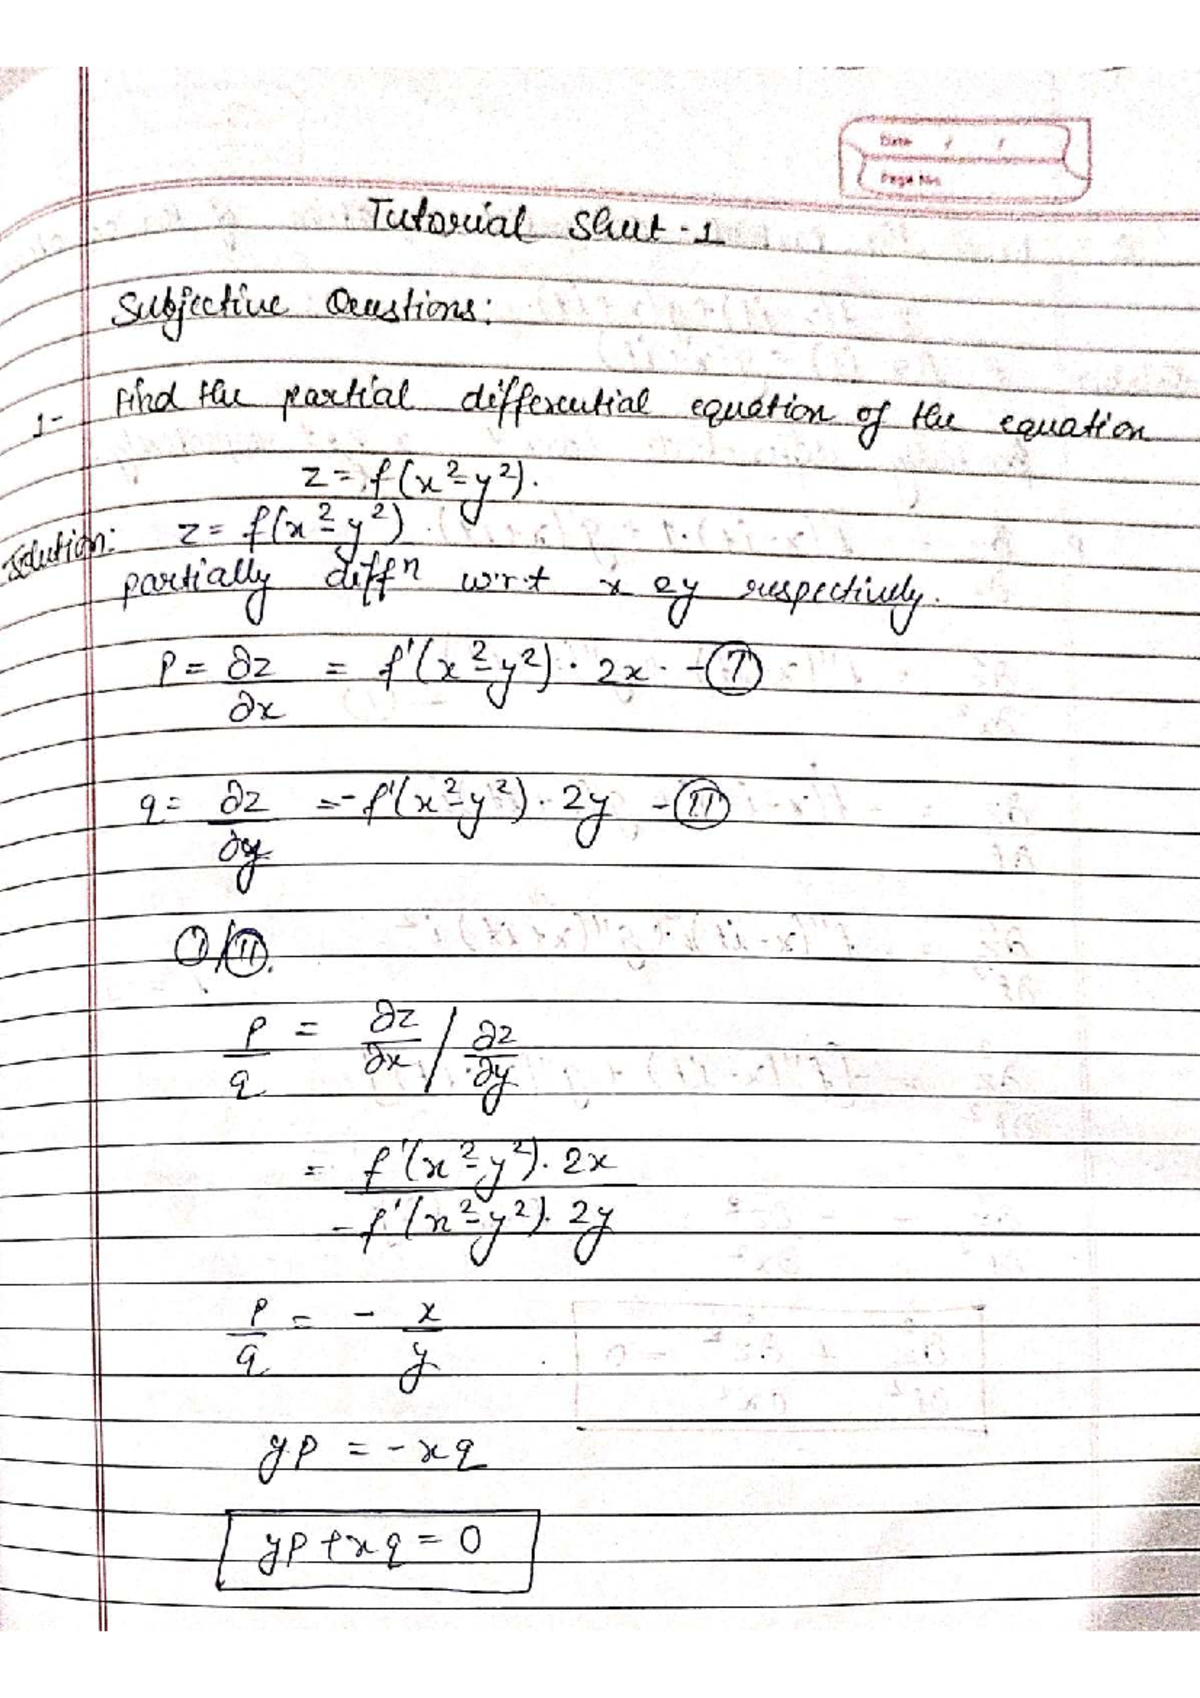 Date / /
Page No.
Tutorial Sheet-1
Subjective Questions:
1- Find the partial differential equation of the equation
z = f(x²-y²).
Solution: z = f(x²-y²).
partially diffn w.r.t x & y respectively.
p = ∂z/∂x = f'(x²-y²)·2x. -(I)
q = ∂z/∂y = -f'(x²-y²)·2y -(II)
(I)/(II).
p/q = ∂z/∂x / ∂z/∂y
= f'(x²-y²)·2x / -f'(x²-y²)·2y
p/q = - x/y
yp = -xq
yp+xq = 0